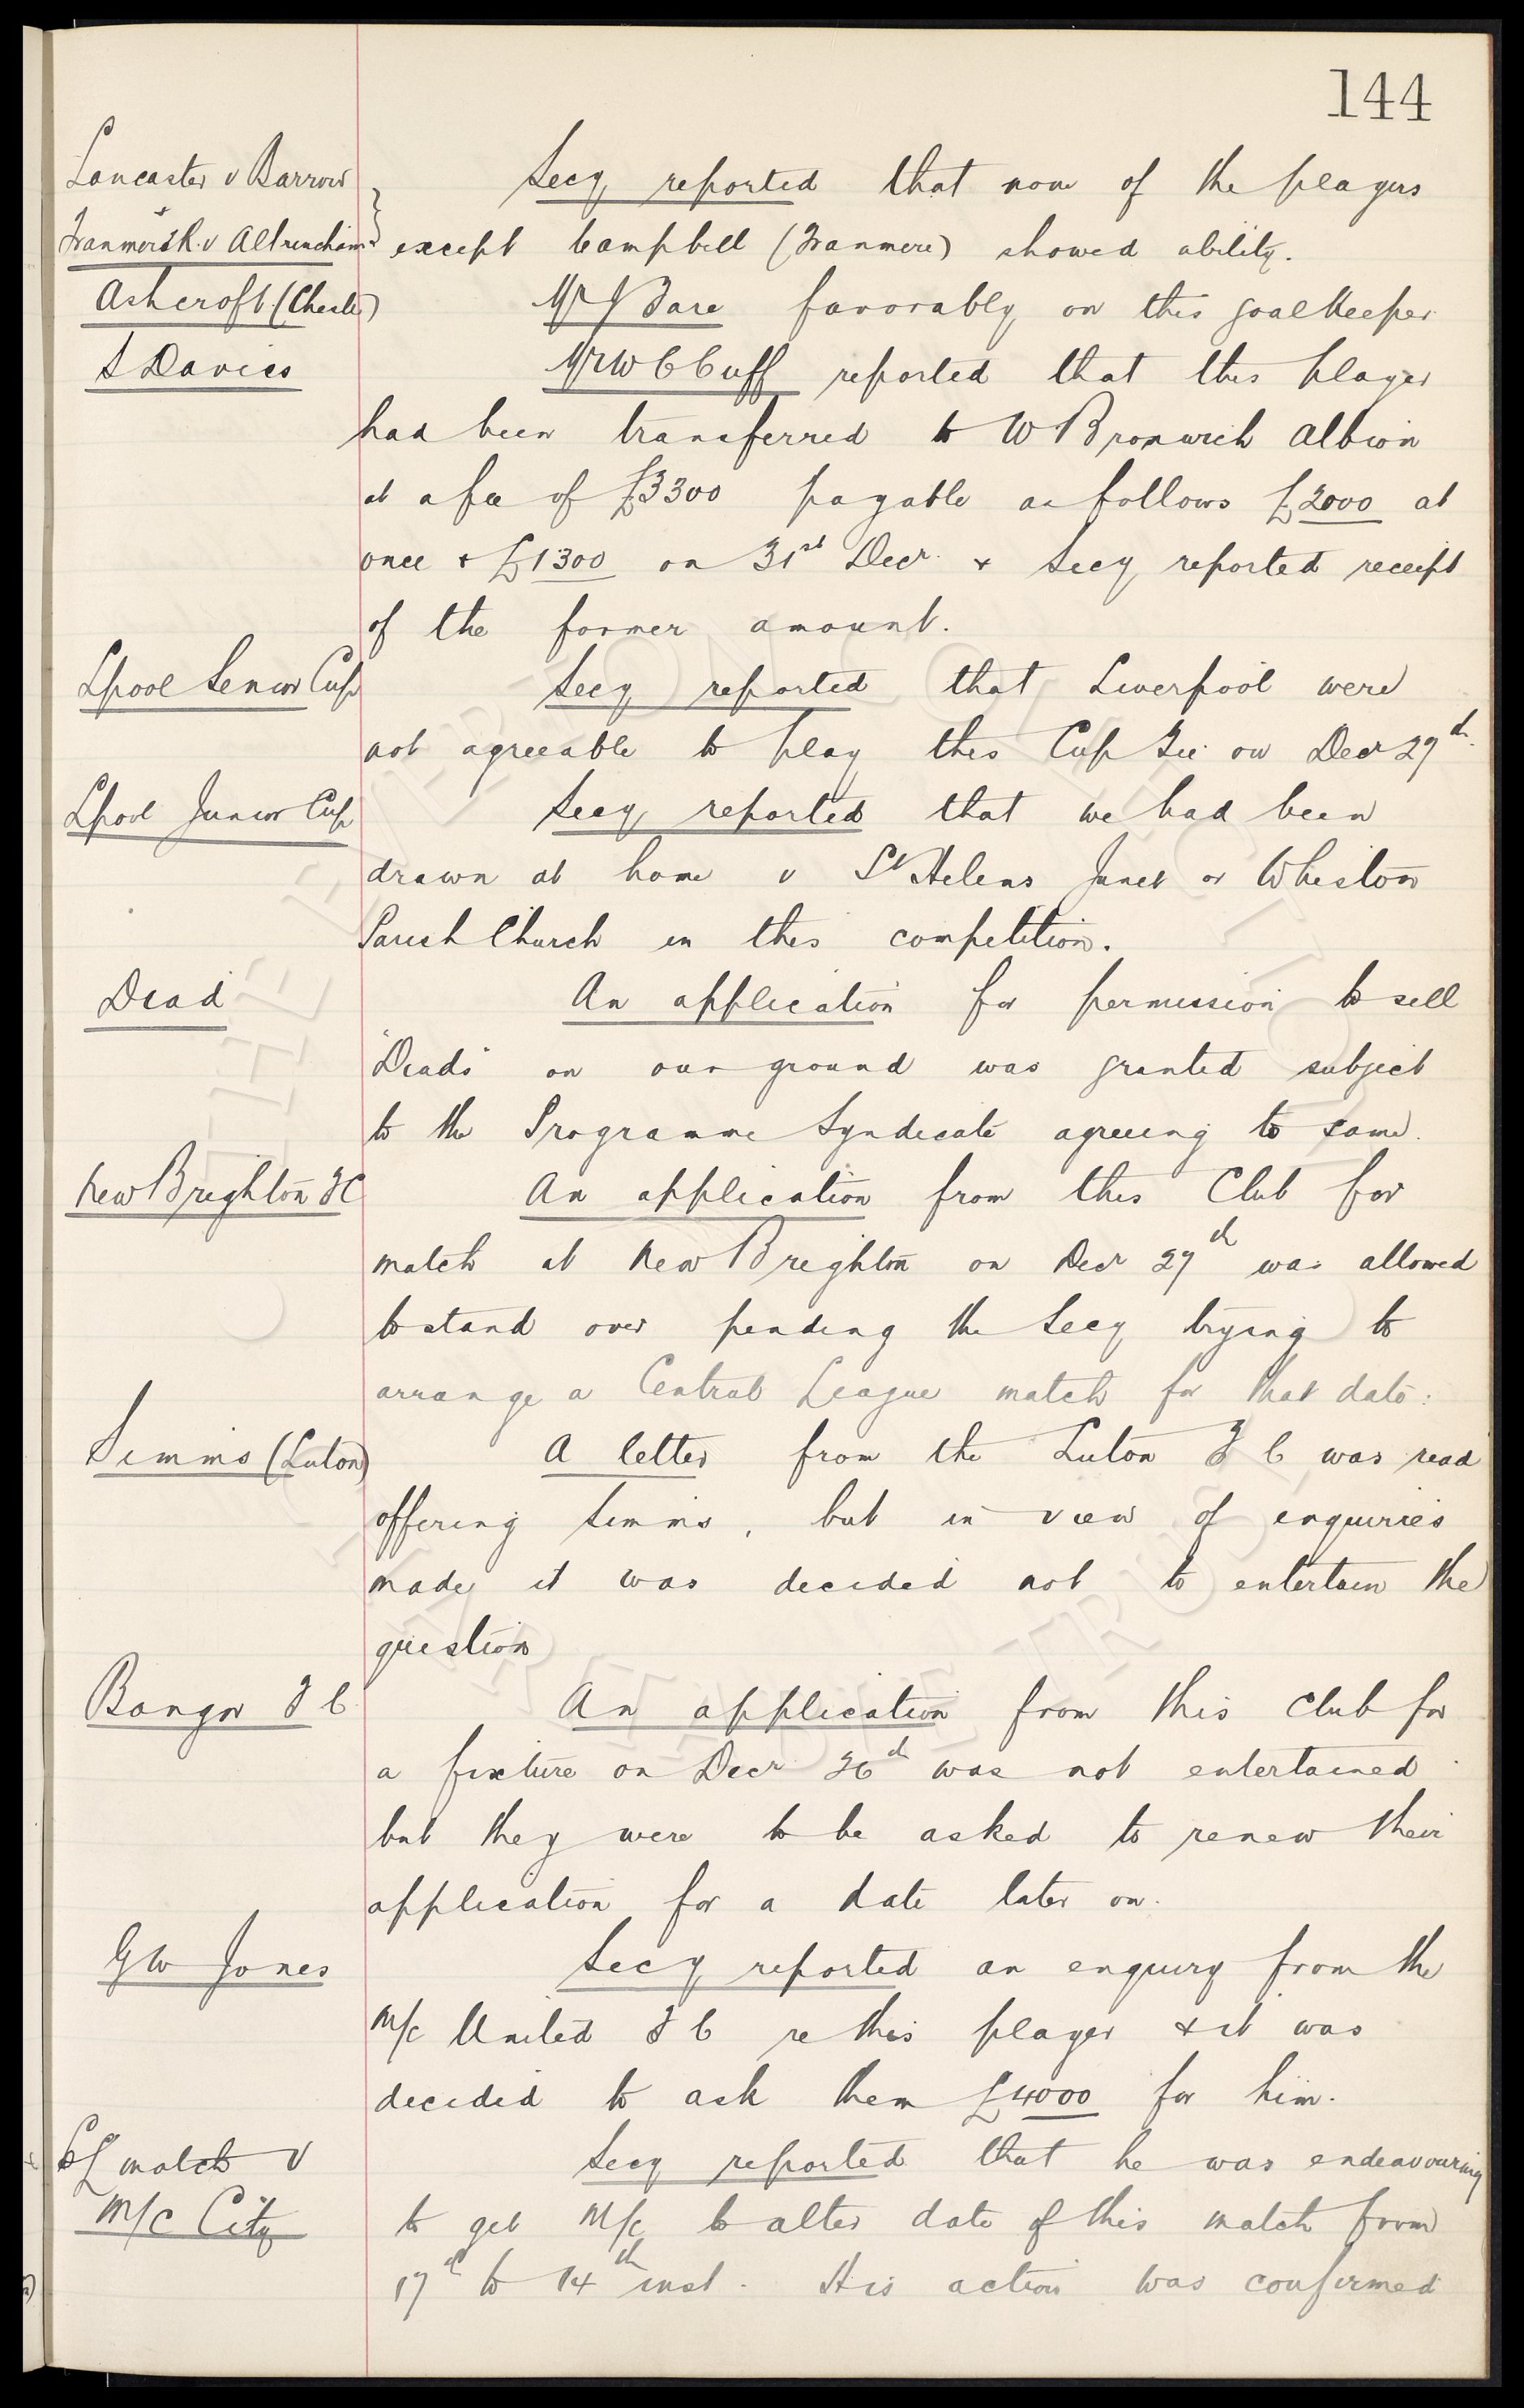 144
Lancaster v Barrow
Secy reported that none of the players
Tranmere R. v Altrincham
except Campbell (Tranmere) showed ability.
Ashcroft (Chester)
Mr J Bare favorably on this goalkeeper
S Davies
Mr W C Cuff reported that this player
had been transferred to W Bromwich Albion
at a fee of £3300 payable as follows £2000 at
once & £1300 on 31st Decr. & Secy reported receipt
of the former amount.
Lpool Senior Cup
Secy reported that Liverpool were
not agreeable to play this Cup Tie on Decr 29th.
Lpool Junior Cup
Secy reported that we had been
drawn at home v St Helens Junct or Whiston
Parish Church in this competition.
Dead
An application for permission to sell
"Deads" on our ground was granted subject
to the Programme Syndicate agreeing to same.
New Brighton FC
An application from this Club for
match at New Brighton on Decr 29th was allowed
to stand over pending the Secy trying to
arrange a Central League match for that date.
Simms (Luton)
A letter from the Luton F C was read
offering Simms, but in view of enquiries
made it was decided not to entertain the
question
Bangor F C
An application from this Club for
a fixture on Decr 26th was not entertained
but they were to be asked to renew their
application for a date later on.
G W Jones
Secy reported an enquiry from the
M/c United F C re this player & it was
decided to ask them £4000 for him.
CL match v
Secy reported that he was endeavouring
M/c City
to get M/c to alter date of this match from
17th to 14th inst. His action was confirmed